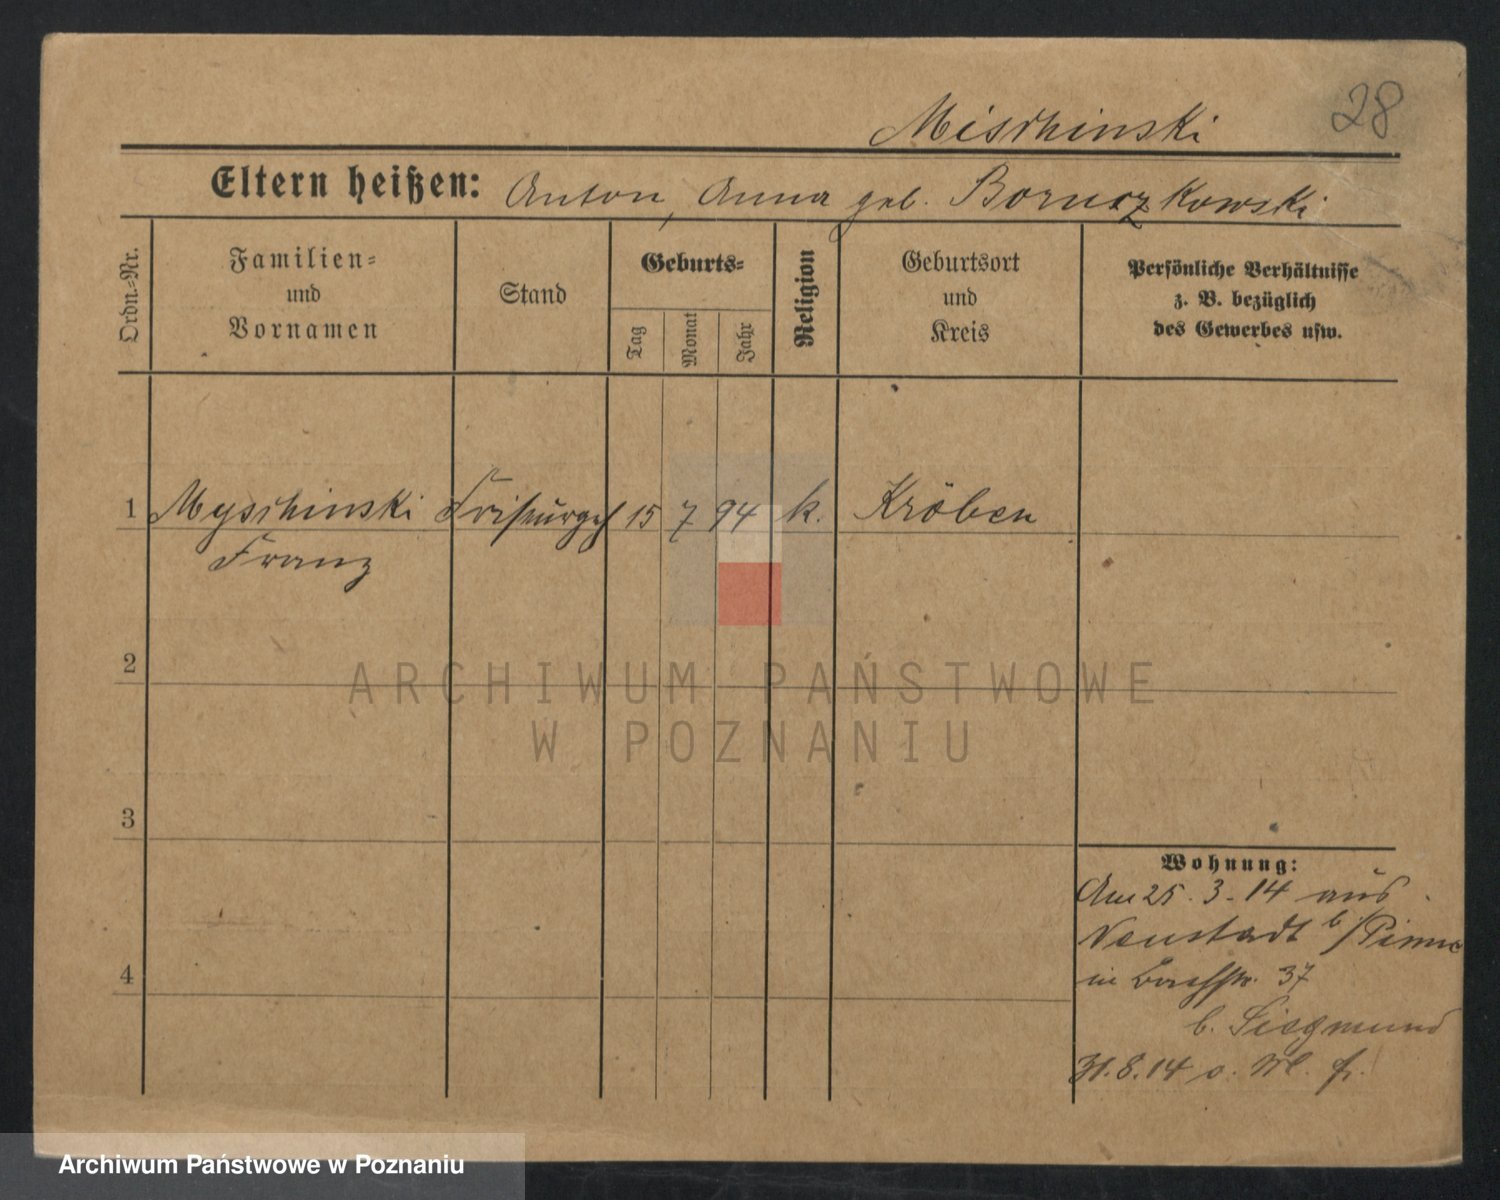 28
Mischinski
Eltern heißen: Anton, Anna geb. Boruczkowski
Ordn.-Nr.
Familien-
und
Vornamen
Stand
Geburts-
Tag
Monat
Jahr
Religion
Geburtsort
und
Kreis
Persönliche Verhältnisse
z. B. bezüglich
des Gewerbes usw.
1 Myschinski Friseurgeh 15 7 94 k. Kröben
Franz
2
ARCHIWUM PAŃSTWOWE
W POZNANIU
3
4
Wohnung:
Am 25.3.14 aus
Neustadt b/Pinne
in 37
b. Siegmund
31.8.14 o.
Archiwum Państwowe w Poznaniu